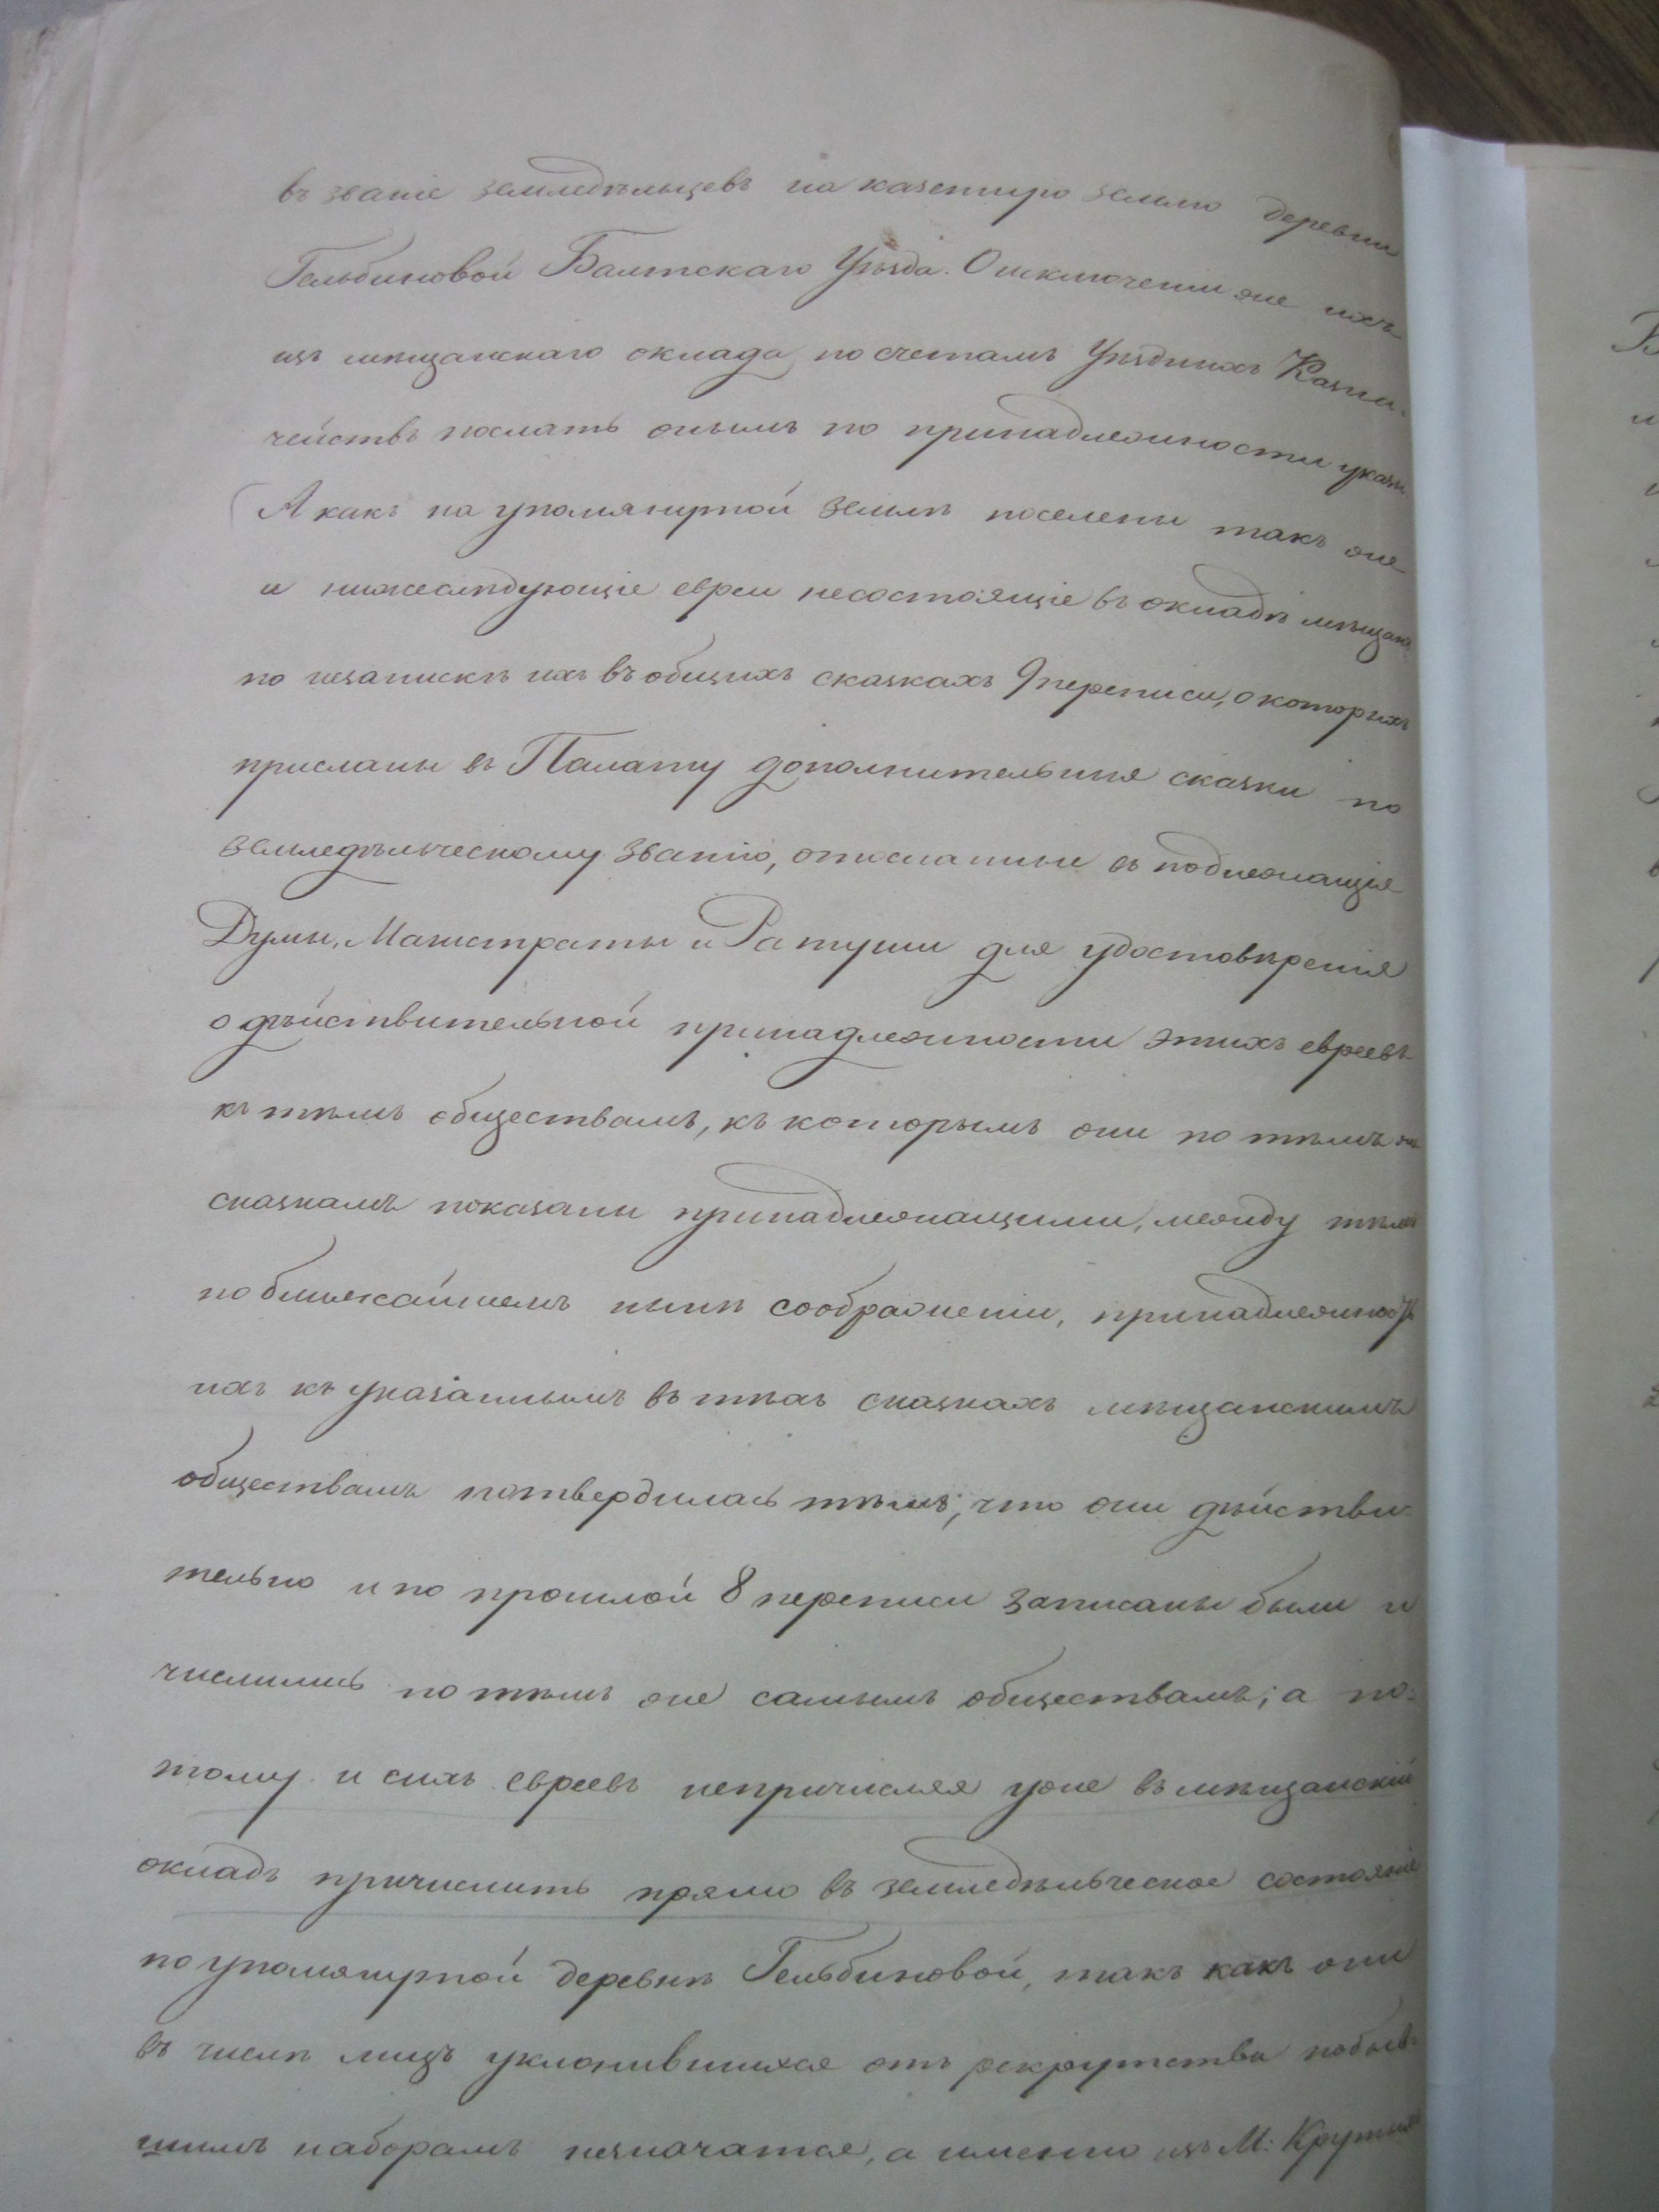 въ званіе земледѣльцевъ на казенную землю деревни
Гельбиновой Балтскаго Уѣзда. О исключеніи же ихъ
изъ мѣщанскаго оклада по счетамъ Уѣздныхъ Казна-
чействъ послать онымъ по принадлежности указы
А какъ на упомянутой землѣ поселены такъ же
и нижеслѣдующіе евреи несостоящіе въ окладѣ мѣщанъ
по незапискѣ ихъ въ общихъ сказкахъ 9 переписи, о которыхъ
присланы въ Палату дополнительныя сказки по
земледѣльческому званію, отосланныя въ подлежащія
Думы, Магистраты и Ратуши для удостовѣренія
о дѣйствительной принадлежности этихъ евреевъ
къ тѣмъ обществамъ, къ которымъ они по тѣмъ же
сказкамъ показаны принадлежащими, между тѣмъ
по ближайшемъ нынѣ соображеніи, принадлежность
ихъ къ указаннымъ въ тѣхъ сказкахъ мѣщанскимъ
обществамъ потвердилась тѣмъ, что они дѣйстви-
тельно и по прошлой 8 переписи записаны были и
числились по тѣмъ же самымъ обществамъ; а по-
тому и сихъ евреевъ непричисляя уже въ мѣщанскій
окладъ причислить прямо въ земледѣльческое состояніе
по упомянутой деревнѣ Гельбиновой, такъ какъ они
въ числѣ лицъ уклонившихся отъ рекрутства по быв-
шимъ наборамъ незначатся, а именно изъ М: